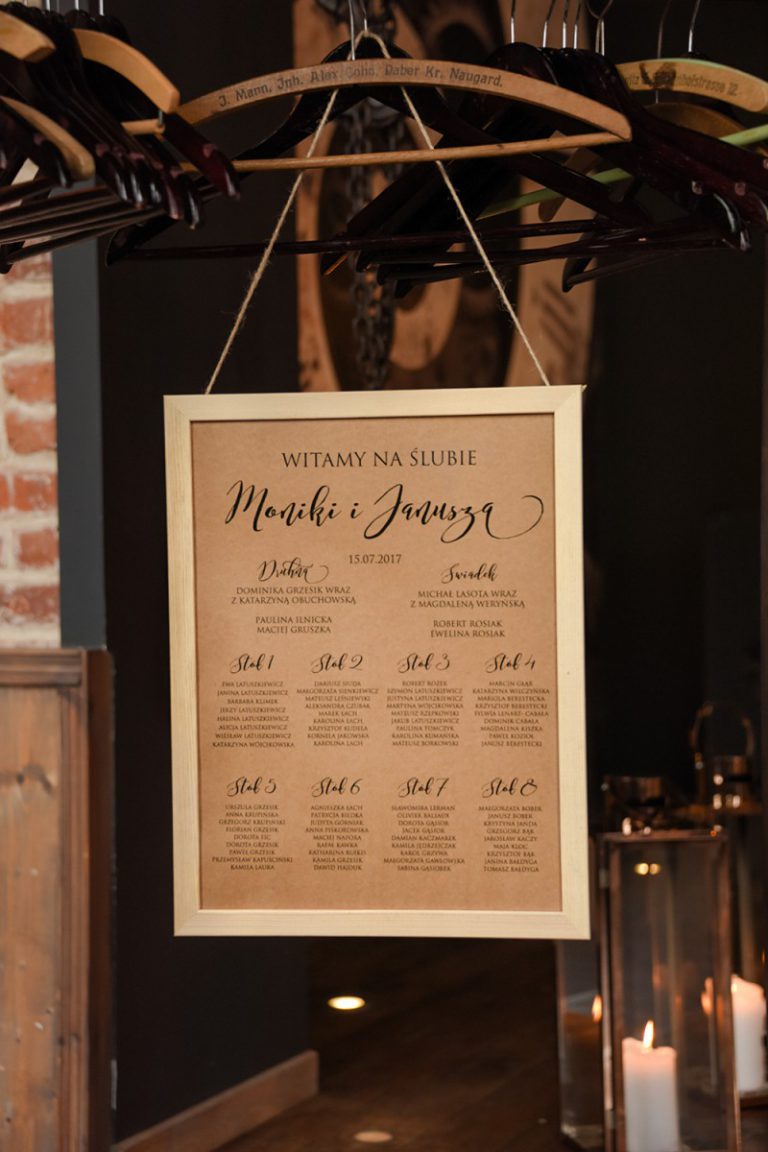 J. Mann, Inh. Alex Cohn, Daber Kr. Naugard.
WITAMY NA ŚLUBIE
Moniki i Janusza
15.07.2017
Druhna
DOMINIKA GRZESIK WRAZ
Z KATARZYNĄ OBUCHOWSKĄ
PAULINA ILNICKA
MACIEJ GRUSZKA
Świadek
MICHAŁ LASOTA WRAZ
Z MAGDALENĄ WERYŃSKĄ
ROBERT ROSIAK
EWELINA ROSIAK
Stół 1
EWA LATUSZKIEWICZ
JANINA LATUSZKIEWICZ
BARBARA KLIMEK
JERZY LATUSZKIEWICZ
HALINA LATUSZKIEWICZ
ALICJA LATUSZKIEWICZ
WIESŁAW LATUSZKIEWICZ
KATARZYNA WÓJCIKOWSKA
Stół 2
DARIUSZ SIUDA
MAŁGORZATA SIENKIEWICZ
MATEUSZ LEŚNIEWSKI
ALEKSANDRA CZUBAK
MAREK ŁACH
KAROLINA ŁACH
KRZYSZTOF KUDEŁA
KORNELA JAKOWSKA
KAROLINA ŁACH
Stół 3
ROBERT ROŻEK
SZYMON LATUSZKIEWICZ
JUSTYNA LATUSZKIEWICZ
MARTYNA WOJCIKOWSKA
MATEUSZ RZEPKOWSKI
JAKUB LATUSZKIEWICZ
PAULINA TOMCZYK
KAROLINA KUMAŃSKA
MATEUSZ BORKOWSKI
Stół 4
MARCIN GŁĄB
KATARZYNA WILCZYŃSKA
MARIOLA BERESTECKA
KRZYSZTOF BERESTECKI
SYLWIA LENART- CABAŁA
DOMINIK CABAŁA
MAGDALENA KISZKA
PAWEŁ KOZIOŁ
JANUSZ BERESTECKI
Stół 5
URSZULA GRZESIK
ANNA KRUPIŃSKA
GRZEGORZ KRUPIŃSKI
FLORIAN GRZESIK
DOROTA FIC
DOROTA GRZESIK
PAWEŁ GRZESIK
PRZEMYSŁAW
KAMILA LAURA
Stół 6
AGNIESZKA ŁACH
PATRYCJA BIEDKA
JUDYTA GÓRNIAK
ANNA PISKOROWSKA
MACIEJ NAPORA
RAFAŁ KAWKA
KATHARINA
KAMILA GRZESIK
DAWID HAJDUK
Stół 7
SŁAWOMIRA LERMAN
OLIVIER BALIAUT
DOROTA GĄSIOR
JACEK GĄSIOR
DAMIAN KACZMAREK
KAMILA JĘDRZEJCZAK
KAROL GRZYWA
MAŁGORZATA GAWŁOWSKA
SABINA GĄSIOREK
Stół 8
MAŁGORZATA BOBEK
JANUSZ BOBEK
KRYSTYNA JANDA
GRZEGORZ BĄK
JAROSŁAW KACZY
MAJA KLOC
KRZYSZTOF BĄK
JANINA BAŁDYGA
TOMASZ BAŁDYGA